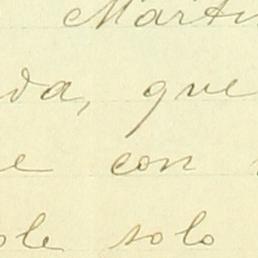 Martin
da, que
e con
ole solo